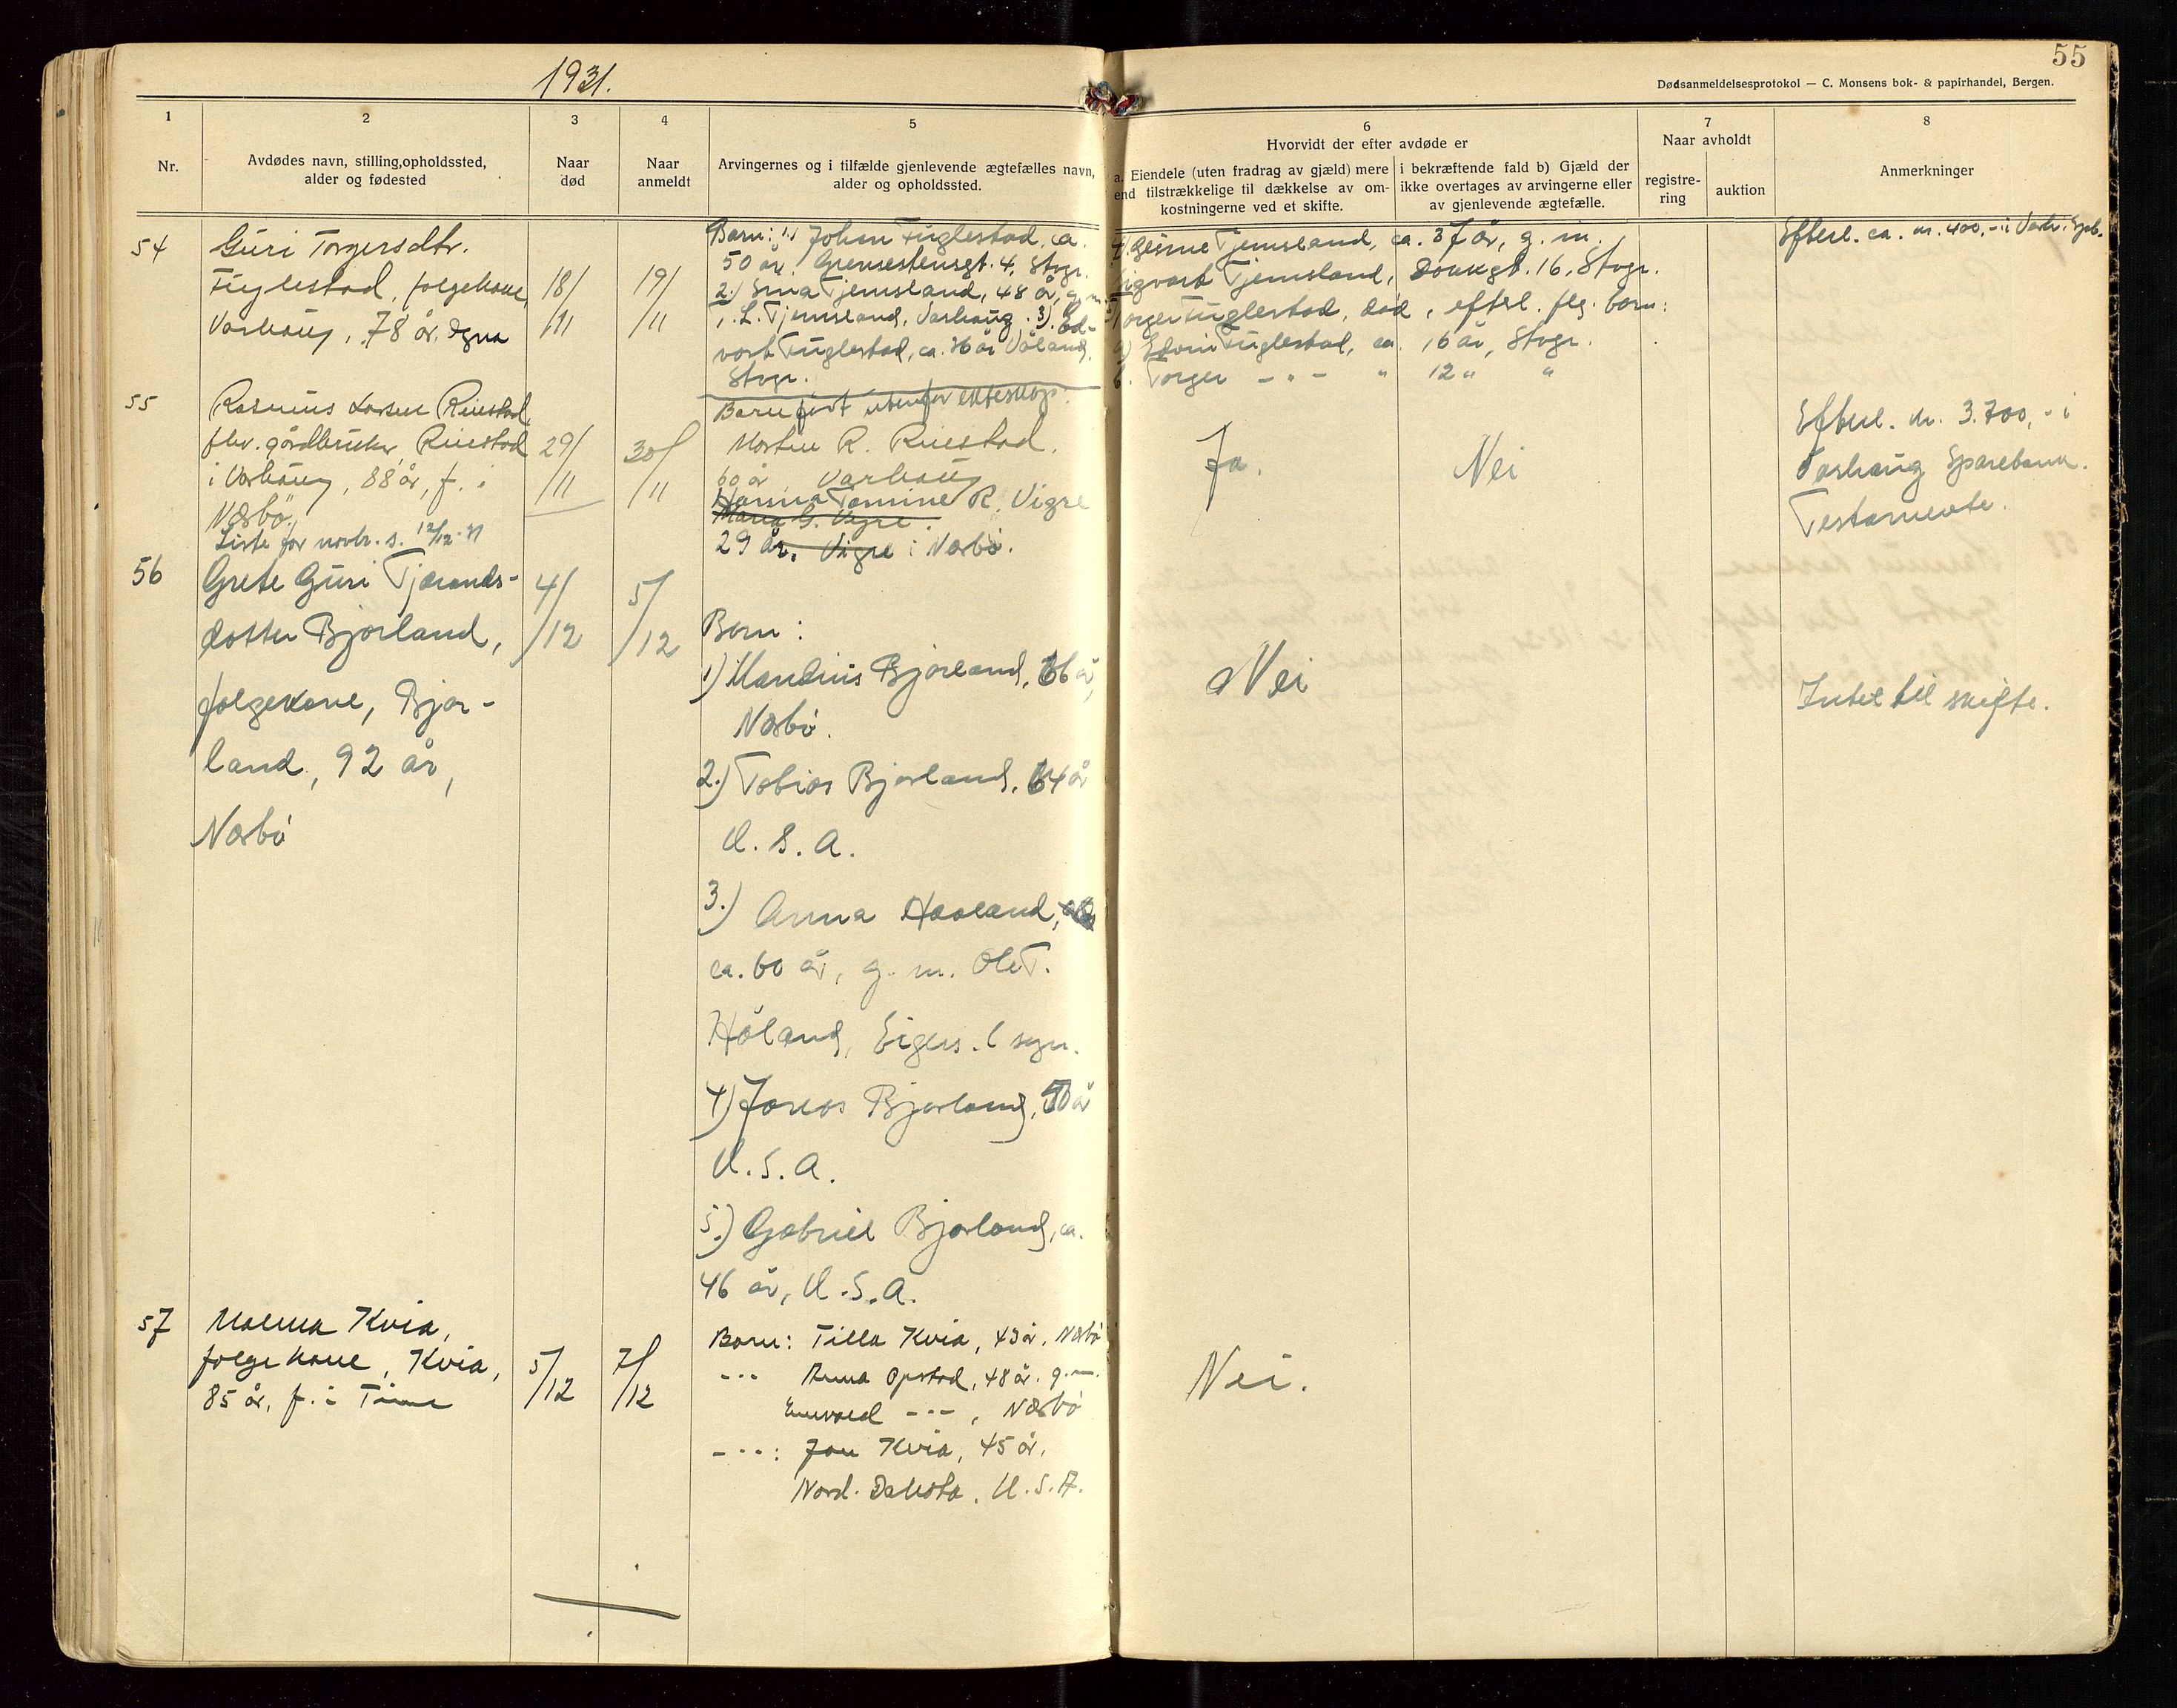 1931.
55
Dødsanmeldelsesprotokol — C. Monsens bok- & papirhandel, Bergen.
1
Nr.
2
Avdødes navn, stilling, opholdssted,
alder og fødested
3
Naar
død
4
Naar
anmeldt
5
Arvingernes og i tilfælde gjenlevende ægtefælles navn,
alder og opholdssted.
6
Hvorvidt der efter avdøde er
a. Eiendele (uten fradrag av gjæld) mere
end tilstrækkelige til dækkelse av om-
kostningerne ved et skifte.
i bekræftende fald b) Gjæld der
ikke overtages av arvingerne eller
av gjenlevende ægtefælle.
7
Naar avholdt
registre-
ring
auktion
8
Anmerkninger
54
Guri Torgersdtr.
Fuglestad, folgekone,
Varhaug, 78 år, Ogna
18/
/11
19/
/11
Barn: 1.) Johan Fuglestad, ca.
50 år, Grensestensgt. 4, Stvgr.
2.) Sina Tjemsland, 48 år, g.m.
L. Tjemsland, Varhaug. 3) Ed-
vart Fuglestad, ca. 36 år Våland,
Stvgr.
Tjemsland, ca. 37 år, g. m.
Sigvart Tjemsland, gt. 16, Stvgr.
Torger Fuglestad, død, efterl. flg. born:
a) Edvin Fuglestad, ca. 16 år, Stvgr.
b. Torger — " — " 12 " "
Efterl. ca. kr. 400,- i Varh. Spb.
55
Rasmus Larsen Riiestad,
fhv. gårdbruker, Riiestad
i Varhaug, 88 år, f. i
Nærbø.
Liste for novbr. s. 12/12-31
29/
/11
30/
/11
Barn født utenfor ekteskap:
Morten R. Riiestad,
60 år, Varhaug
Hanna Tomine R. Vigre
Maria G. Vigre.
29 år, Vigre i Nærbø.
Ja.
Nei
Efterl. kr. 3.700,- i
Varhaug Sparebank.
Testamente.
56
Grete Guri Tjærands-
dotter Bjorland,
folgekone, Bjor-
land, 92 år,
Nærbø
4/
/12
5/
/12
Born:
1) Mandius Bjorland, 66 år,
Nærbø.
2.) Tobias Bjorland, 64 år
U. S. A.
3.) Anna Haaland,
ca. 60 år, g. m. Ole T.
Håland, Eigers. l sogn.
4) Jonas Bjorland, 50 år
U. S. A.
5.) Gabriel Bjorland, ca.
46 år, U. S. A.
Nei
Intet til skifte.
57
Malena Kvia,
folgekone, Kvia,
85 år, f. i Time
5/
/12
7/
/12
Born: Tilla Kvia, 43 år, Nærbø
— " — Anna Opstad, 48 år. g. m.
Enevald — " —, Nærbø
— " —: Jon Kvia, 45 år,
Nord. Dakota, U. S. A.
Nei.